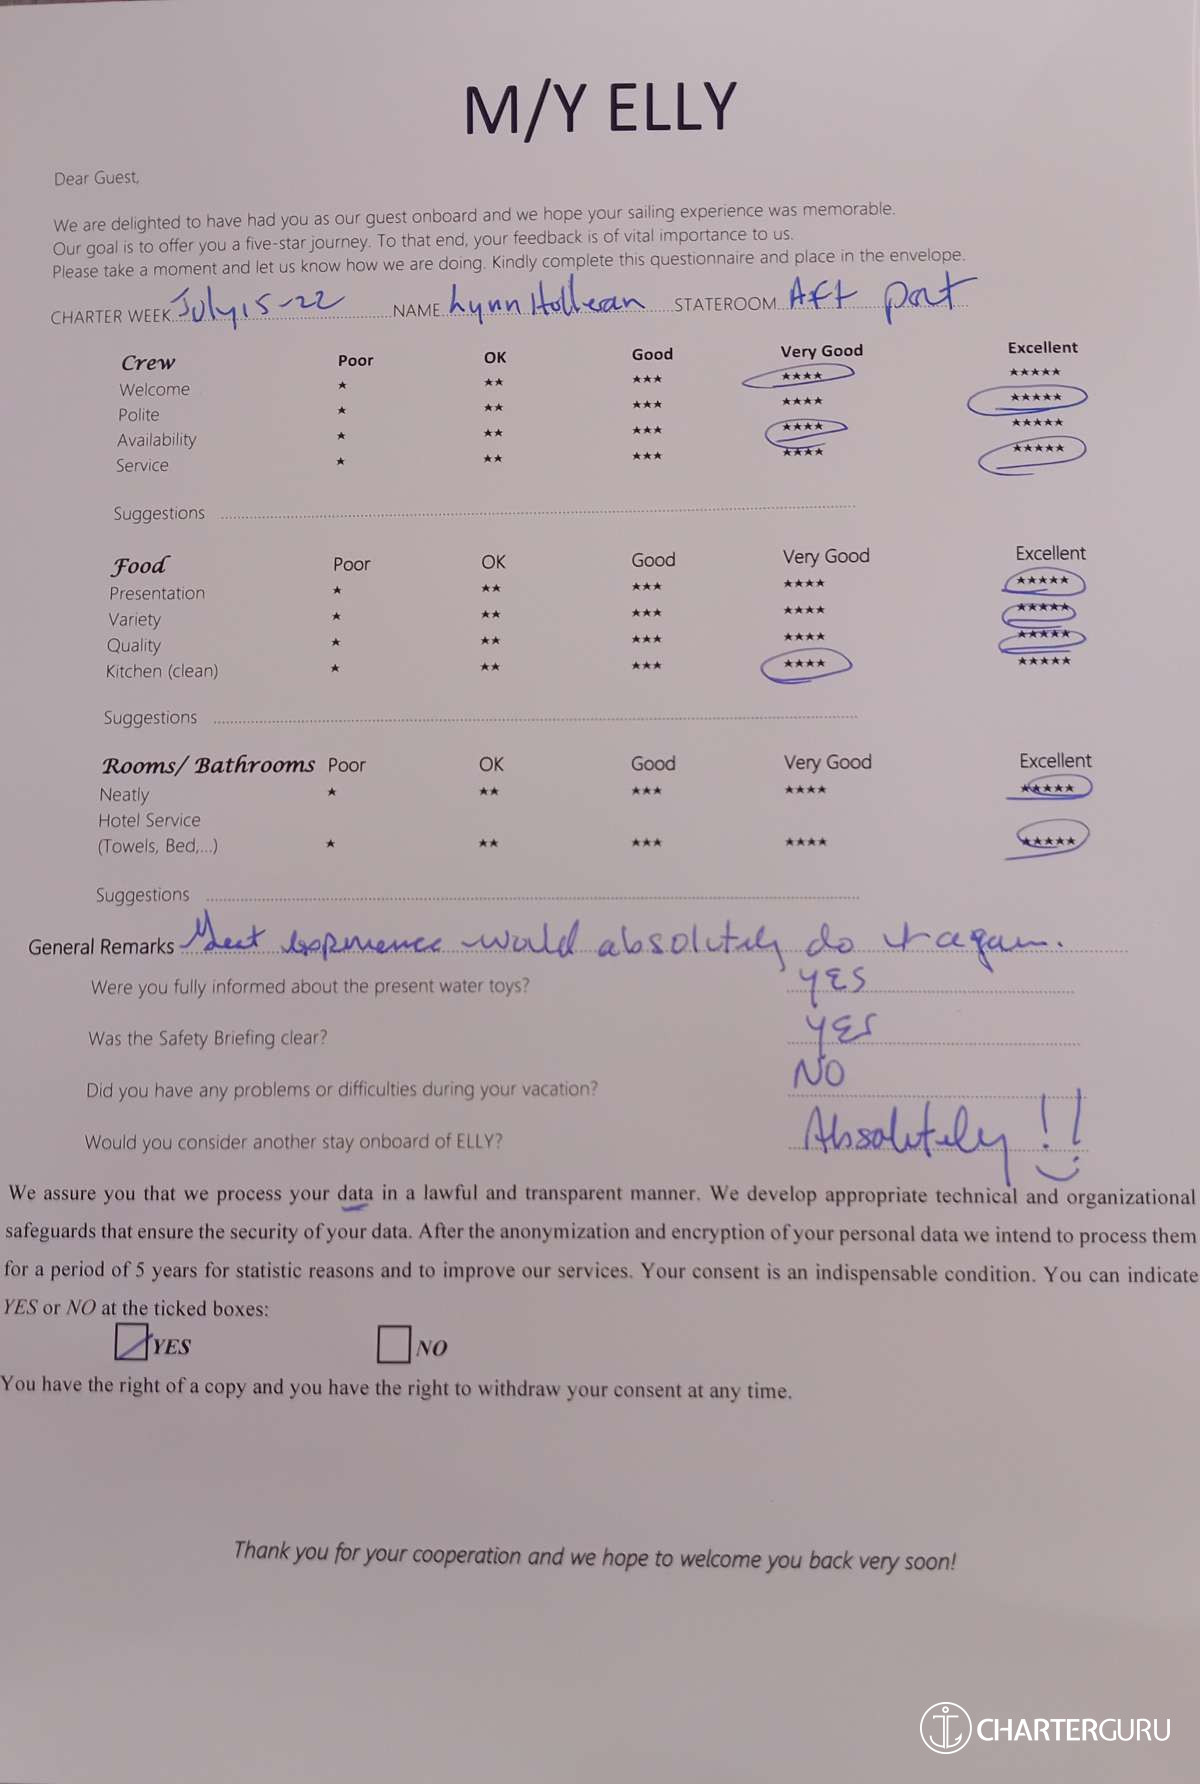 M/Y ELLY
Dear Guest,
We are delighted to have had you as our guest onboard and we hope your sailing experience was memorable.
Our goal is to offer you a five-star journey. To that end, your feedback is of vital importance to us.
Please take a moment and let us know how we are doing. Kindly complete this questionnaire and place in the envelope.
CHARTER WEEK July 15-22 NAME Lynn Holleran STATEROOM Aft port
Crew Poor OK Good Very Good Excellent
Welcome ★ ★★ ★★★ ★★★★ ★★★★★
Polite ★ ★★ ★★★ ★★★★ ★★★★★
Availability ★ ★★ ★★★ ★★★★ ★★★★★
Service ★ ★★ ★★★ ★★★★ ★★★★★
Suggestions
Food Poor OK Good Very Good Excellent
Presentation ★ ★★ ★★★ ★★★★ ★★★★★
Variety ★ ★★ ★★★ ★★★★ ★★★★★
Quality ★ ★★ ★★★ ★★★★ ★★★★★
Kitchen (clean) ★ ★★ ★★★ ★★★★ ★★★★★
Suggestions
Rooms/ Bathrooms Poor OK Good Very Good Excellent
Neatly ★ ★★ ★★★ ★★★★ ★★★★★
Hotel Service
(Towels, Bed,...) ★ ★★ ★★★ ★★★★ ★★★★★
Suggestions
General Remarks Great experience would absolutely do it again.
Were you fully informed about the present water toys? YES
Was the Safety Briefing clear? YES
Did you have any problems or difficulties during your vacation? NO
Would you consider another stay onboard of ELLY? Absolutely!!
We assure you that we process your data in a lawful and transparent manner. We develop appropriate technical and organizational
safeguards that ensure the security of your data. After the anonymization and encryption of your personal data we intend to process them
for a period of 5 years for statistic reasons and to improve our services. Your consent is an indispensable condition. You can indicate
YES or NO at the ticked boxes:
YES NO
You have the right of a copy and you have the right to withdraw your consent at any time.
Thank you for your cooperation and we hope to welcome you back very soon!
CHARTERGURU